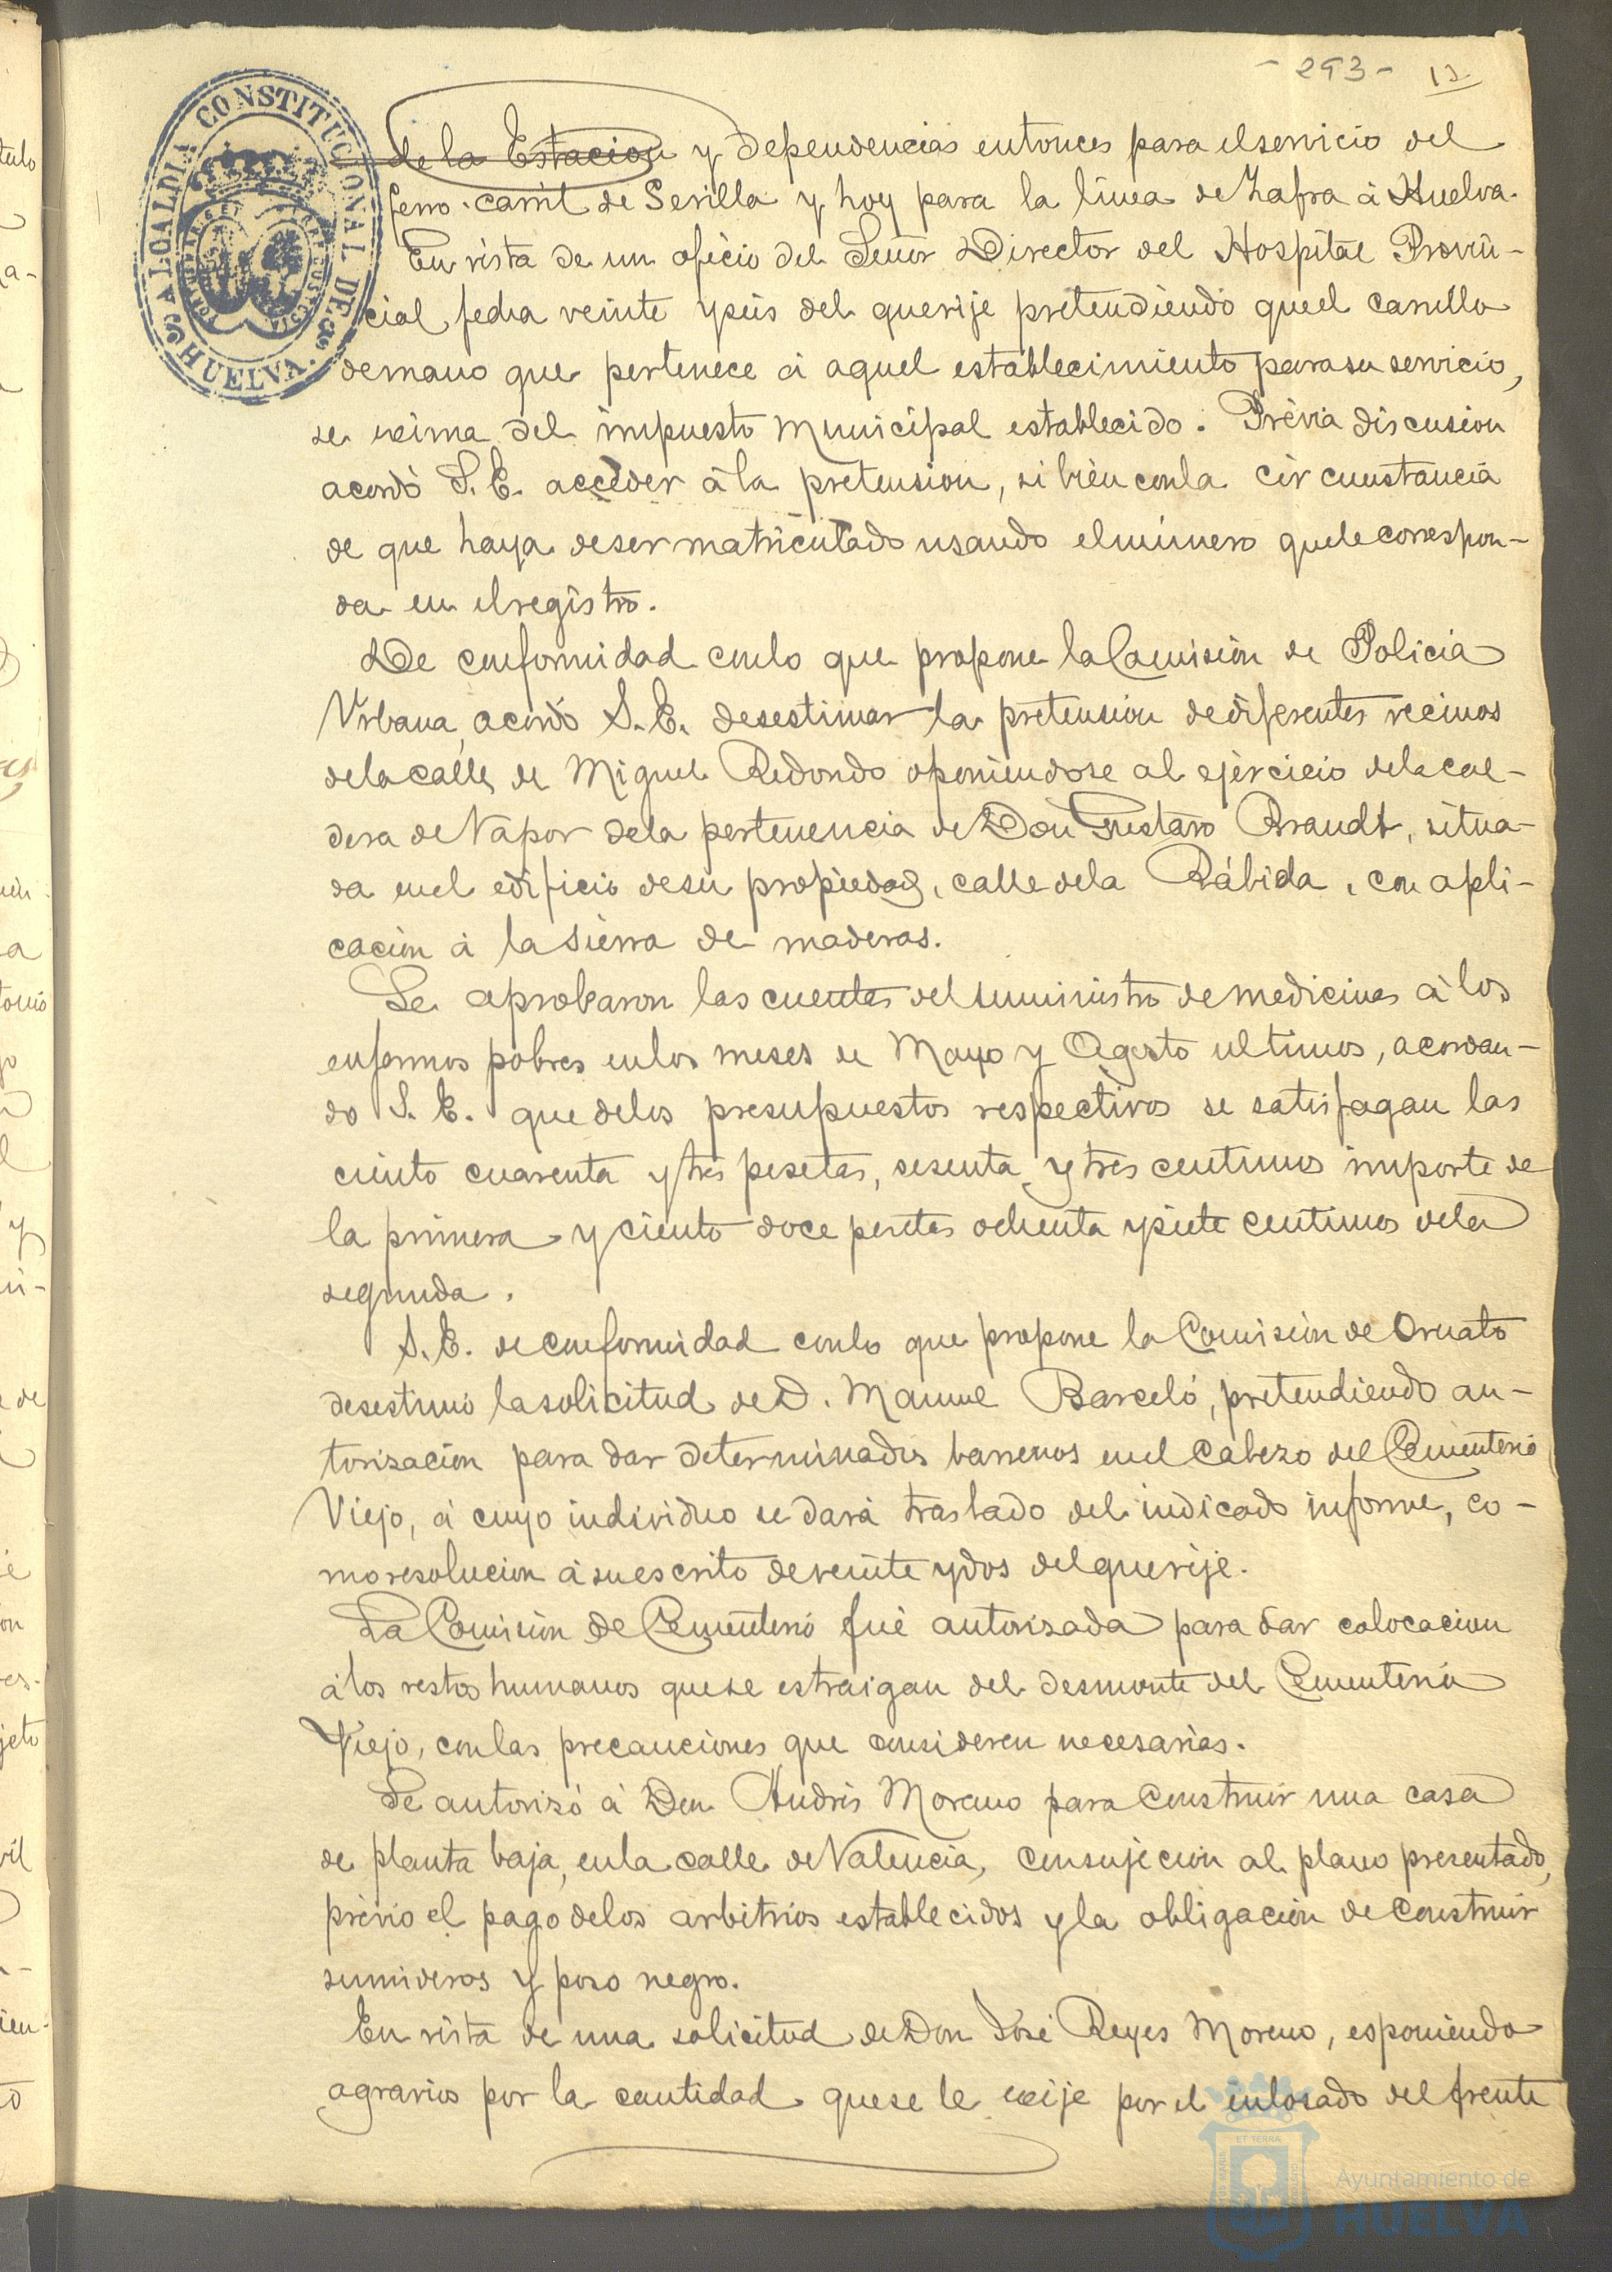 - 293 - 12
ALCALDIA CONSTITUCIONAL DE HUELVA.
de la Estacion y dependencias entonces para el servicio del
ferro-carril de Sevilla y hoy para la linea de Zafra á Huelva.
En vista de un oficio del Señor Director del Hospital Provin-
cial fecha veinte y seis del que rije pretendiendo que el carrillo
de mano que pertenece á aquel establecimiento para su servicio,
se exima del impuesto municipal establecido. Prévia discusion
acordó S. E. acceder á la pretension, si bien con la circunstancia
de que haya de ser matriculado usando el número que le correspon-
da en el registro.
De conformidad con lo que propone la Comisión de Policia
Urbana, acordó S. E. desestimar la pretension de diferentes vecinos
de la calle de Miguel Redondo oponiendose al ejercicio de la cal-
dera de Vapor de la pertenencia de Don Gustavo Brandt, situa-
da en el edificio de su propiedad, calle de la Rábida, con apli-
cación á la sierra de maderas.
Se aprobaron las cuentas del suministro de medicinas á los
enfermos pobres en los meses de Mayo y Agosto ultimos, acordan-
do S. E. que de los presupuestos respectivos se satisfagan las
ciento cuarenta y tres pesetas, sesenta y tres centimos importe de
la primera y ciento doce pesetas ochenta y siete centimos de la
segunda.
S. E. de conformidad con lo que propone la Comisión de Ornato
desestimó la solicitud de D. Manuel Barceló, pretendiendo au-
torización para dar determinados barrenos en el Cabezo del Cementerio
Viejo, á cuyo individuo se dará traslado del indicado informe, co-
mo resolucion á su escrito de veinte y dos del que rije.
La Comisión de Cementerio fué autorizada para dar colocacion
á los restos humanos que se estraigan del desmonte del Cementerio
Viejo, con las precauciones que consideren necesarias.
Se autorizó á Don Andrés Moreno para construir una casa
de planta baja, en la calle de Valencia, con sujecion al plano presentado,
prévio el pago de los arbitrios establecidos y la obligación de construir
sumideros y pozo negro.
En vista de una solicitud de Don José Reyes Moreno, esponiendo
agravios por la cantidad que se le exije por el enlosado del frente
ET TERRA
Ayuntamiento de
HUELVA